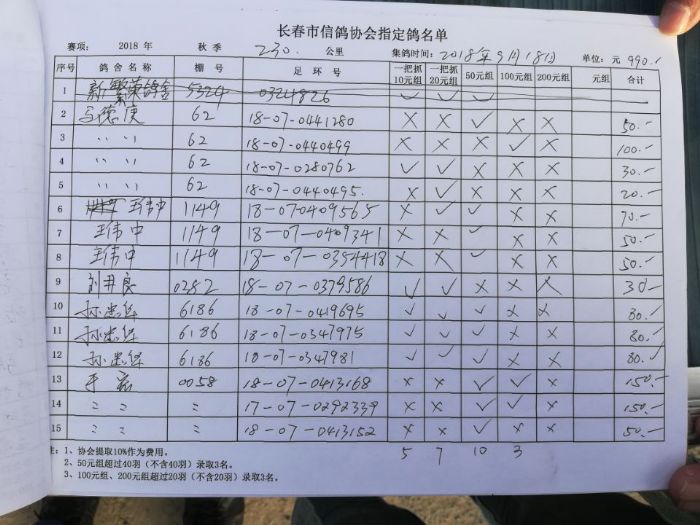 长春市信鸽协会指定鸽名单
赛项: 2018 年 秋季 230 公里 集鸽时间: 2018年9月18日 单位: 元 990.-
序号 鸽舍名称 棚号 足环号 一把抓10元组 一把抓20元组 50元组 100元组 200元组 元组 合计
1 新繁荣鸽舍 5324 0324826 ✓ ✓ ✓
2 马德庚 62 18-07-0441280 × × ✓ × × 50.-
3 〃 〃 62 18-07-0440499 × × × ✓ × 100.-
4 〃 〃 62 18-07-0280762 ✓ ✓ × × × 30.-
5 〃 〃 62 18-07-0440495. × ✓ × × × 20.-
6 王伟中 1149 18-07-0409565 × ✓ ✓ × × 70.-
7 王伟中 1149 18-07-0409341 × × ✓ × × 50.-
8 王伟中 1149 18-07-0354418 × × ✓ × × 50.-
9 刘井良 0382 18-07-0379586 ✓ ✓ × × × 30-
10 6186 18-07-0419695 ✓ ✓ ✓ × × 80.-
11 6186 18-07-0347975 ✓ ✓ ✓ × × 80.-
12 6186 18-07-0347981 ✓ ✓ ✓ × × 80.-
13 0058 18-07-0413168 × × ✓ ✓ × 150.-
14 〃 〃 17-07-0292339 × × ✓ ✓ × 150.-
15 〃 〃 18-07-0413152 × × ✓ × × 50.-
注: 1、协会提取10%作为费用。 5 7 10 3
2、50元组超过40羽(不含40羽)录取3名。
3、100元组、200元组超过20羽(不含20羽)录取3名。